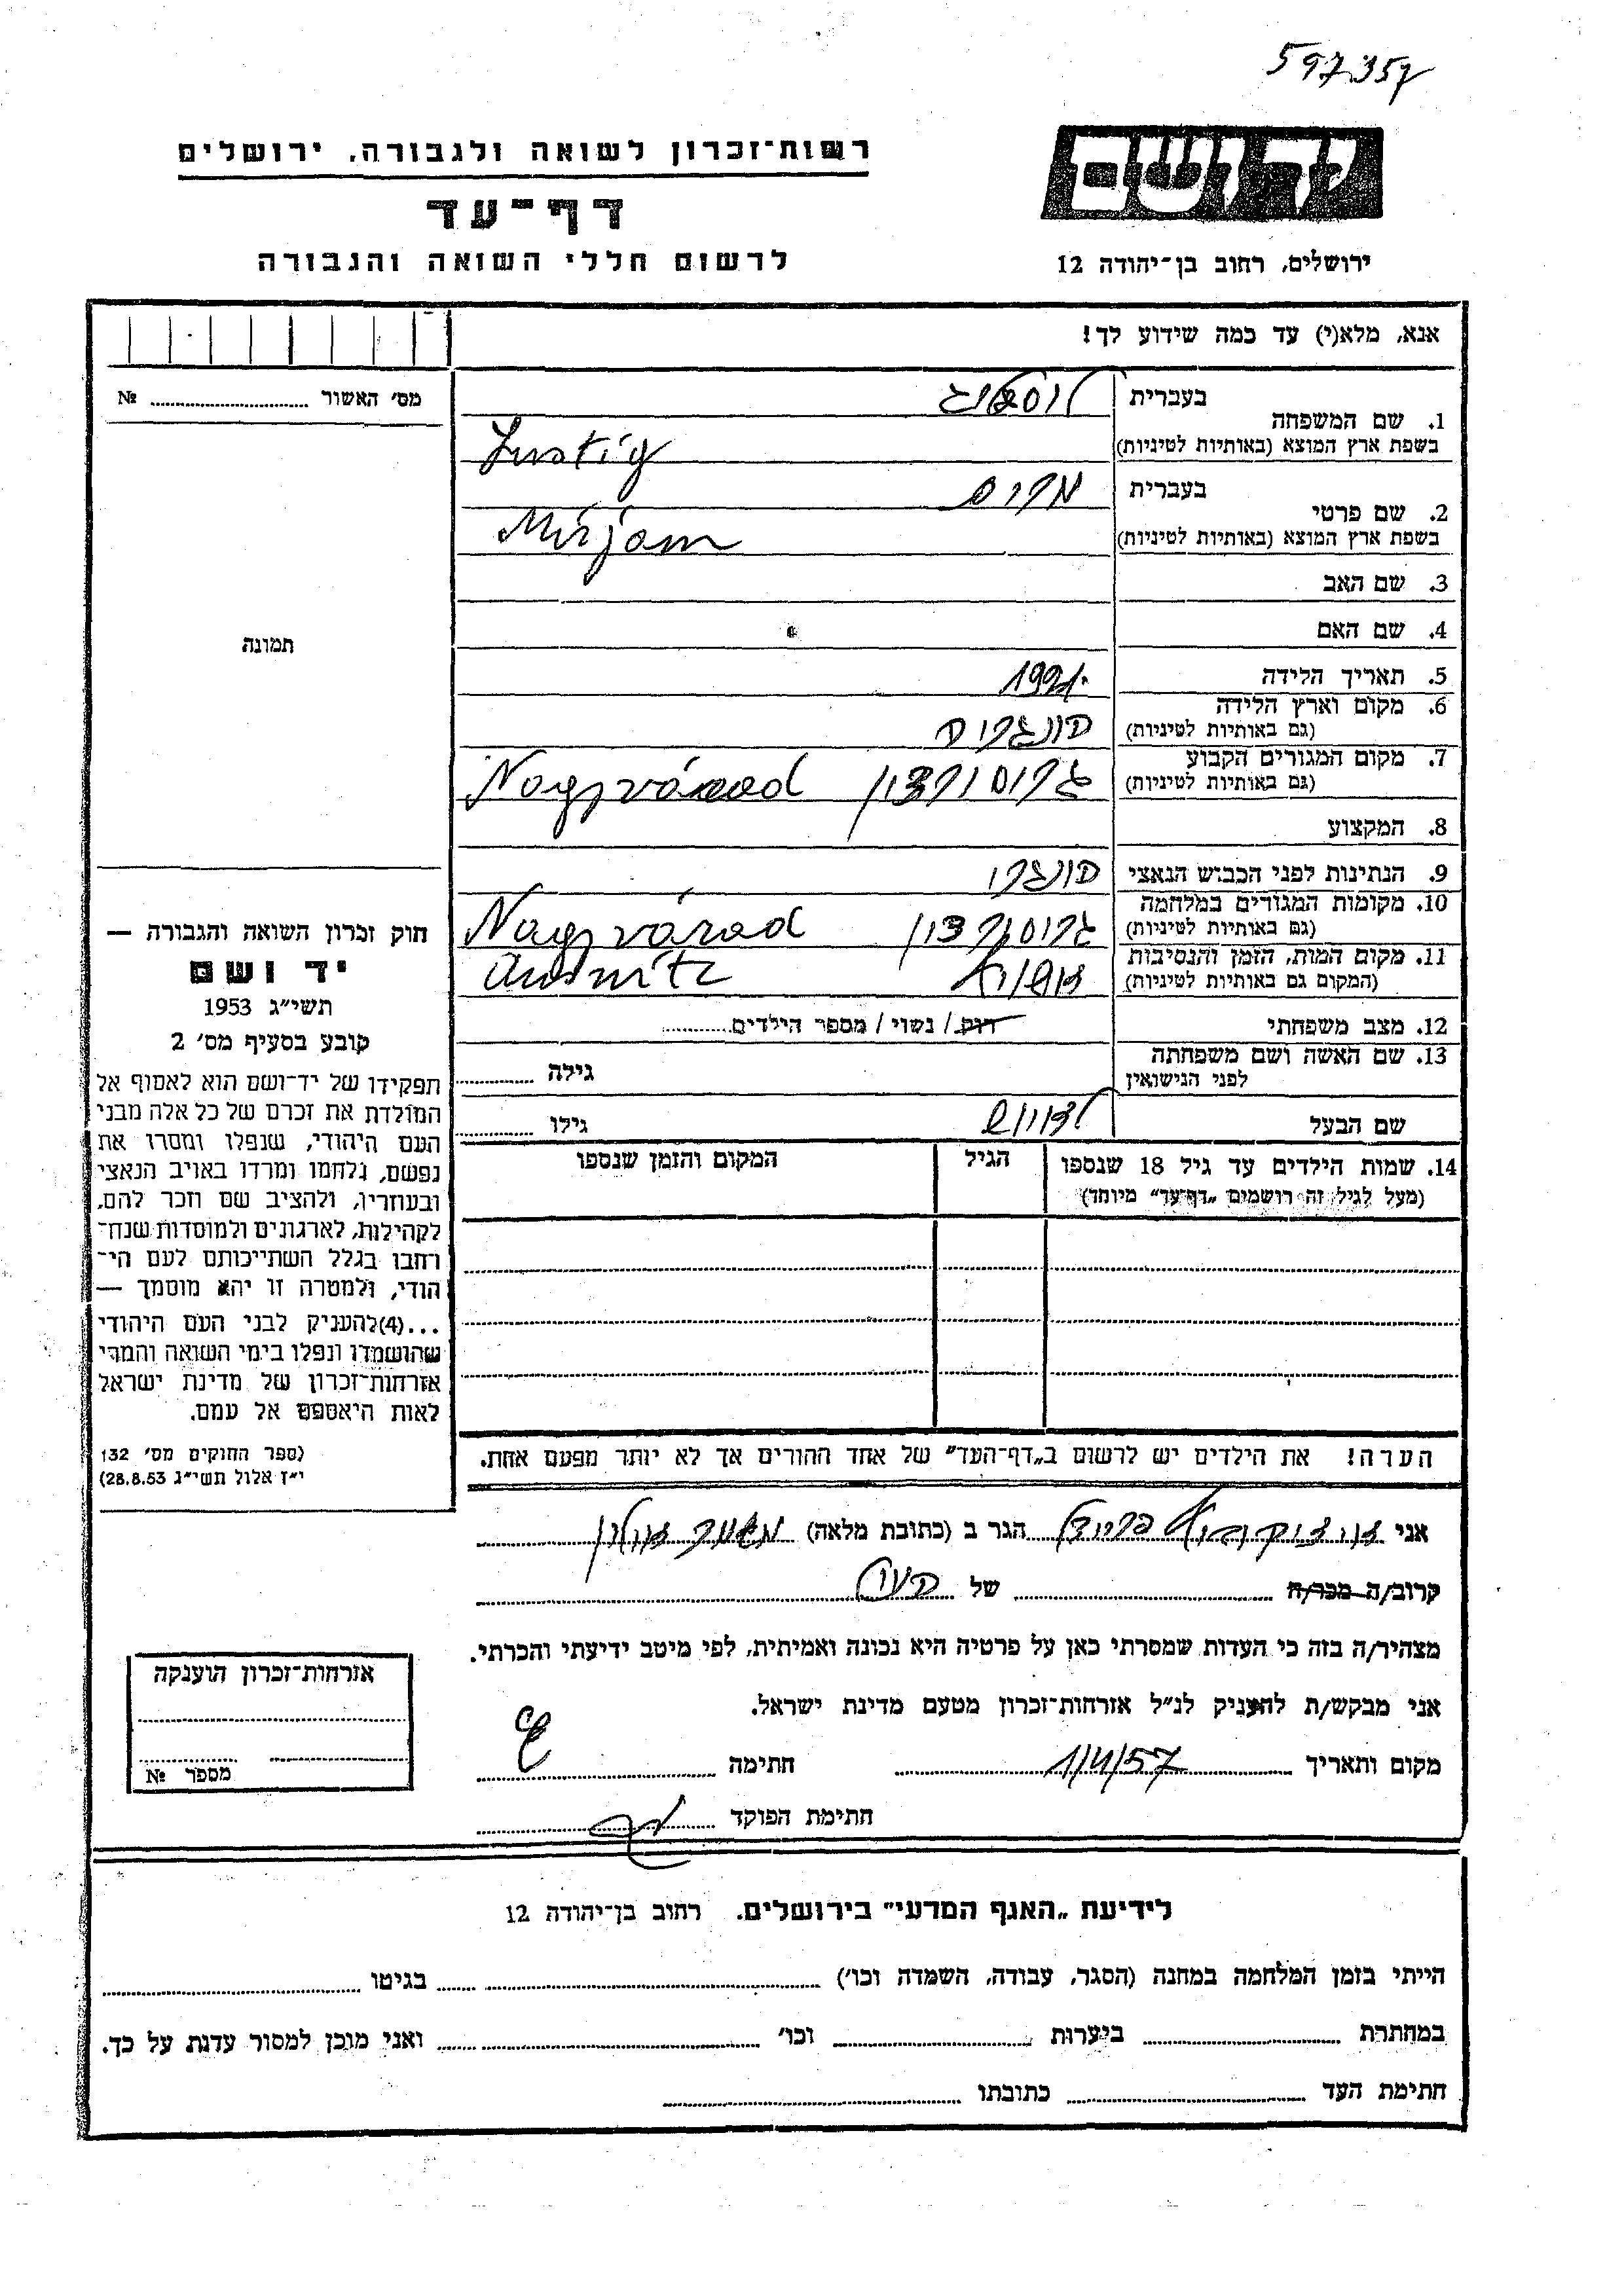 597357
יד ושם
רשות־זכרון לשואה ולגבורה, ירושלים
דף־עד
לרשום חללי השואה והגבורה
ירושלים, רחוב בן־יהודה 12
אנא, מלא(י) עד כמה שידוע לך!
מס׳ האשור ........ №
תמונה
1. שם המשפחה
בעברית לוסטיג
בשפת ארץ המוצא (באותיות לטיניות) Lustig
2. שם פרטי
בעברית מרים
בשפת ארץ המוצא (באותיות לטיניות) Mirjam
3. שם האב
4. שם האם
5. תאריך הלידה
6. מקום וארץ הלידה
(גם באותיות לטיניות) הונגריה
7. מקום המגורים הקבוע
(גם באותיות לטיניות) גרוסורדיין Nagyvárad
8. המקצוע
9. הנתינות לפני הכבוש הנאצי הונגרי
10. מקומות המגורים במלחמה
(גם באותיות לטיניות) Nagyvárad
11. מקום המות, הזמן והנסיבות
(המקום גם באותיות לטיניות)
12. מצב משפחתי רוק / נשוי / מספר הילדים........
13. שם האשה ושם משפחתה
לפני הנישואין
גילה ........
שם הבעל
גילו ........
14. שמות הילדים עד גיל 18 שנספו
(מעל לגיל זה רושמים „דף־עד״ מיוחד)
הגיל
המקום והזמן שנספו
הערה! את הילדים יש לרשום ב„דף־העד״ של אחד ההורים אך לא יותר מפעם אחת.
חוק זכרון השואה והגבורה —
יד ושם
תשי״ג 1953
קובע בסעיף מס׳ 2
תפקידו של יד־ושם הוא לאסוף אל
המולדת את זכרם של כל אלה מבני
העם היהודי, שנפלו ומסרו את
נפשם, נלחמו ומרדו באויב הנאצי
ובעוזריו, ולהציב שם וזכר להם,
לקהילות, לארגונים ולמוסדות שנח־
רחבו בגלל השתייכותם לעם הי־
הודי, ולמטרה זו יהא מוסמך —
...(4)להעניק לבני העם היהודי
שהושמדו ונפלו בימי השואה והמרי
אזרחות־זכרון של מדינת ישראל
לאות היאספם אל עמם.
(ספר החוקים מס׳ 132
י״ז אלול תשי״ג 28.8.53)
אני ........ הגר ב (כתובת מלאה) ........
קרוב/ה מכר/ה ........ של ........
מצהיר/ה בזה כי העדות שמסרתי כאן על פרטיה היא נכונה ואמיתית, לפי מיטב ידיעתי והכרתי.
אני מבקש/ת להעניק לנ״ל אזרחות־זכרון מטעם מדינת ישראל.
מקום ותאריך 1/4/57 חתימה ........
חתימת הפוקד ........
אזרחות־זכרון הוענקה
מספר №
לידיעת „האגף המדעי״ בירושלים. רחוב בן־יהודה 12
הייתי בזמן המלחמה במחנה (הסגר, עבודה, השמדה וכו׳) ........ בגיטו ........
במחתרת ........ ביערות ........ וכו׳ ........ ואני מוכן למסור עדות על כך.
חתימת העד ........ כתובתו ........